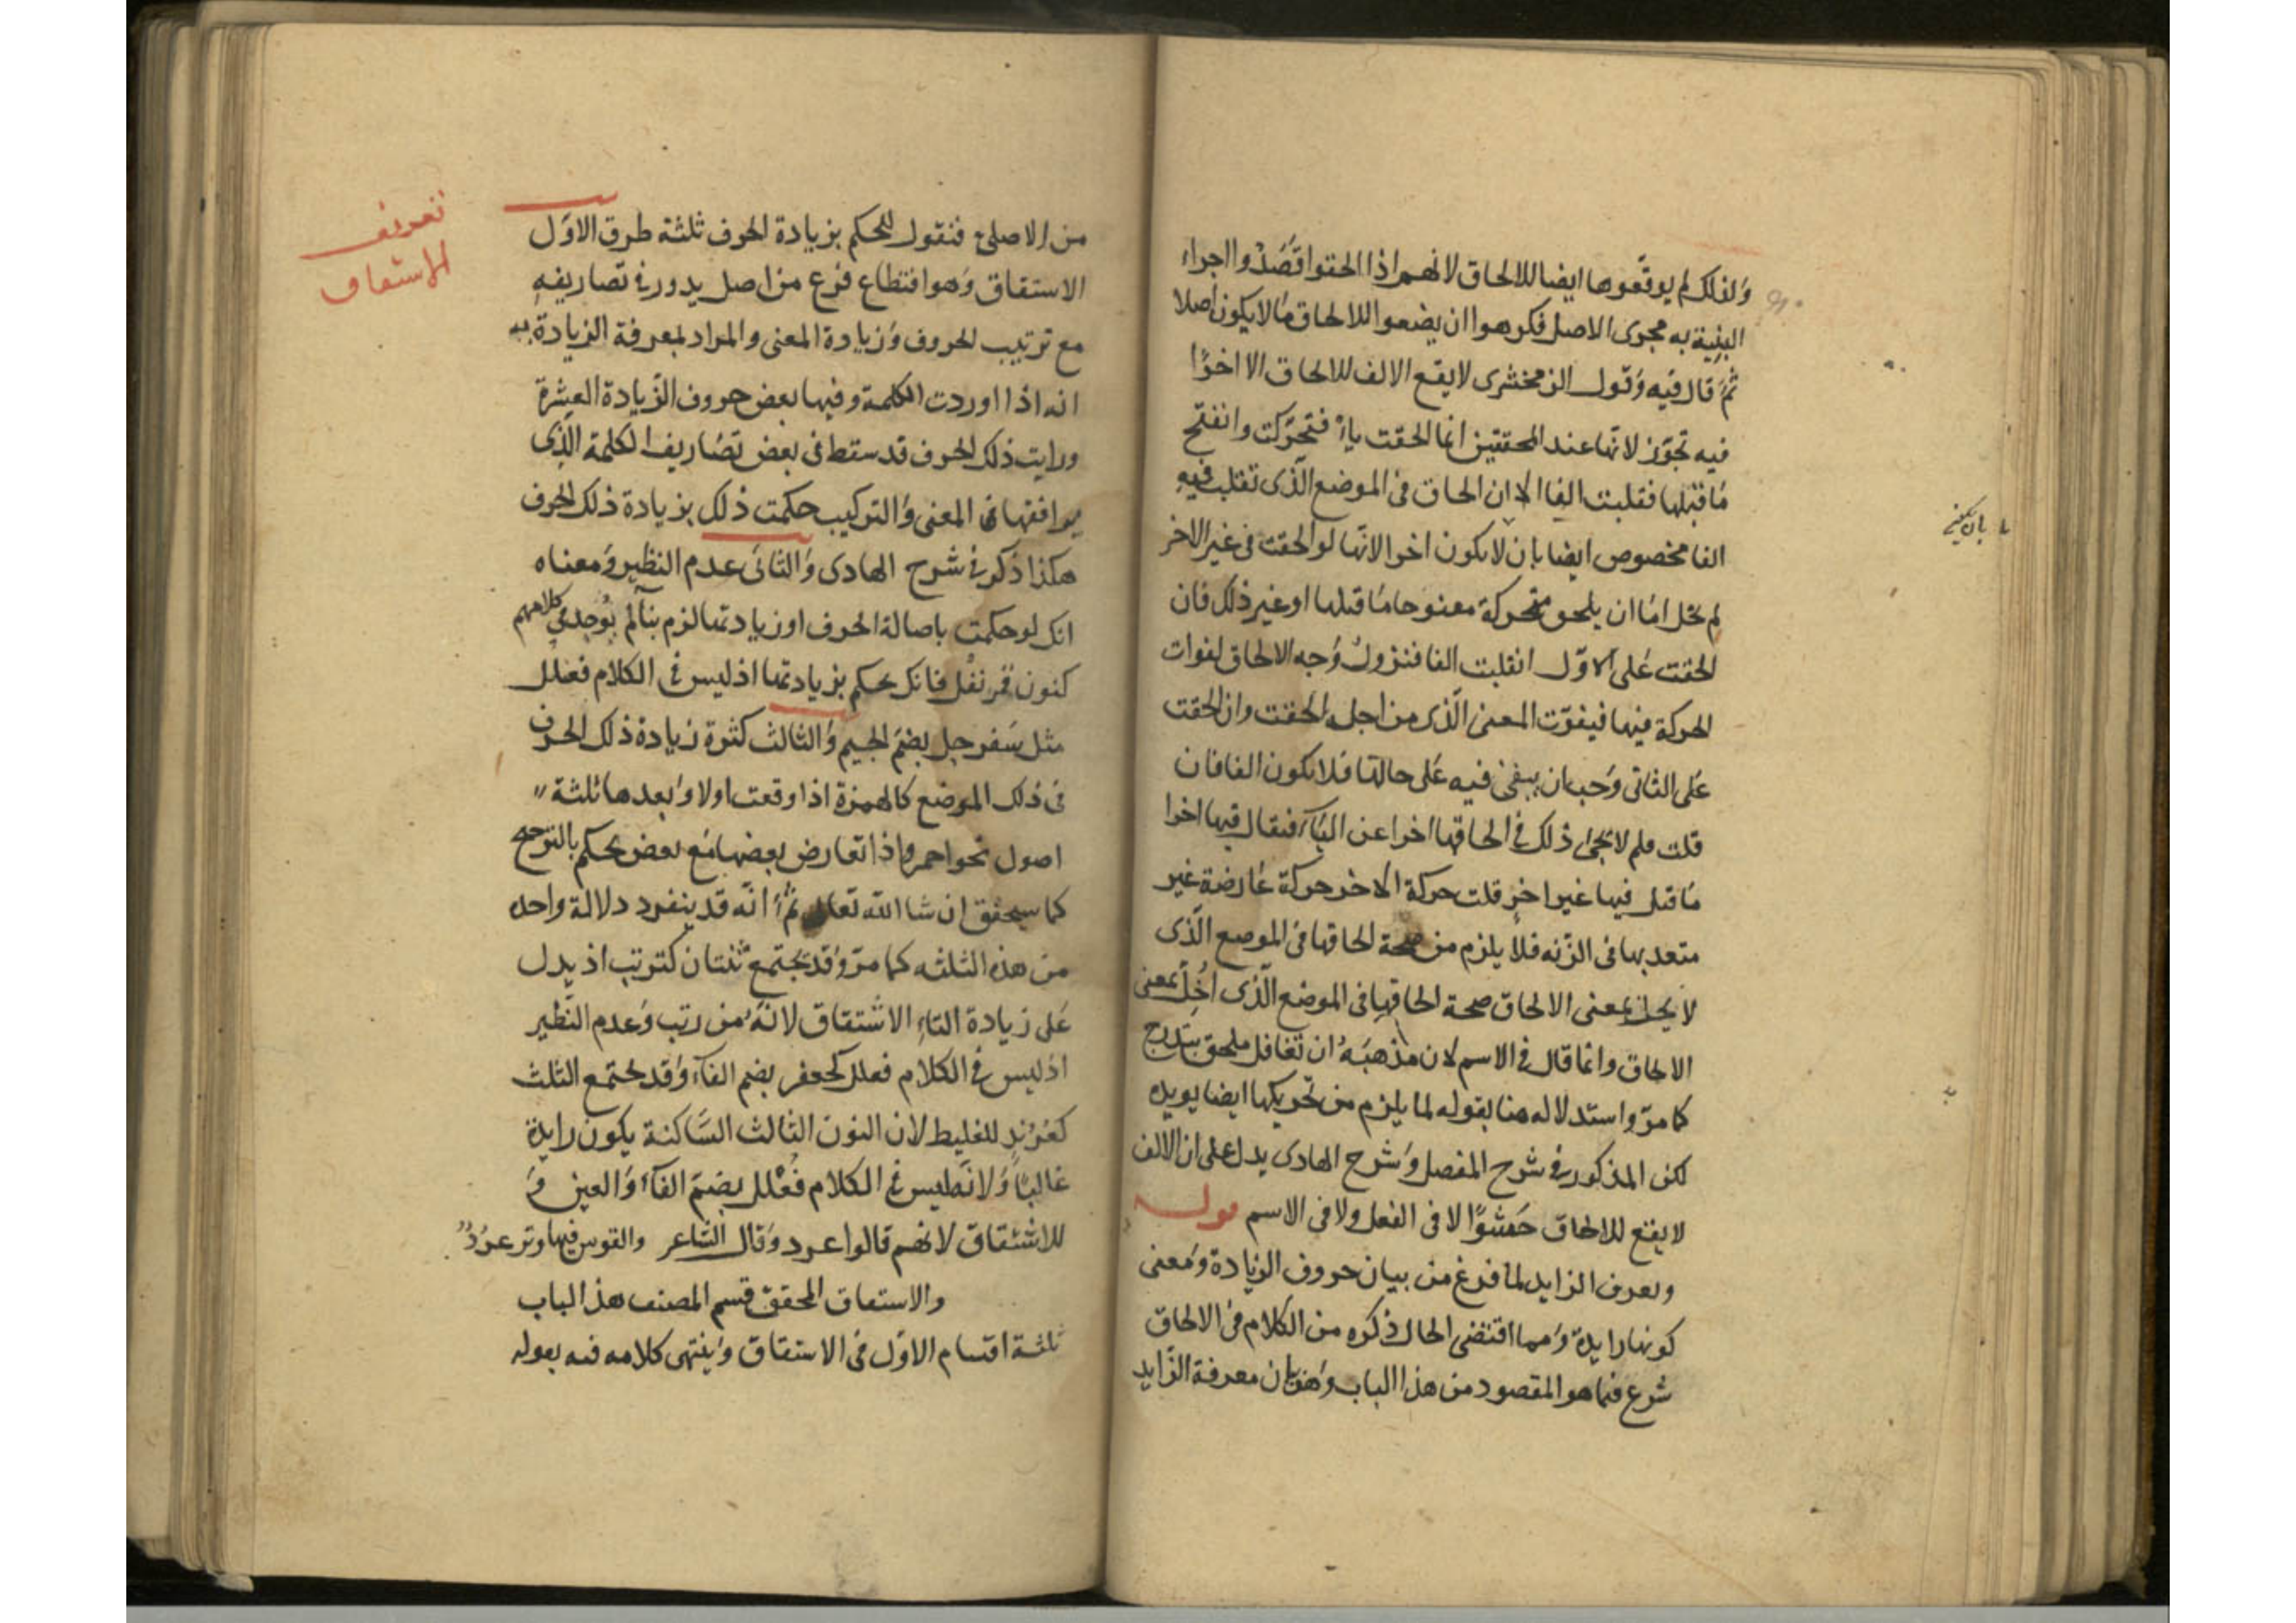 ولذلك لم يوقعوها ايضا للالحاق لانهم اذا الحقوا قصدوا اجراء
البنية به مجرى الاصل فكرهوا ان يضعوا للالحاق ما لا يكون اصلا
ثم قال فيه وقول الزمخشرى لا يقع الالف للالحاق الا اخرًا
فيه تجوّز لانها عند المحققين انما الحقت ياءً فتحرّكت وانفتح
ما قبلها فقلبت الفا الا ان الحاق فى الموضع الّذى تقلب فيه
الفا مخصوص ايضا بان لا يكون اخوا لانّها لو الحقت فى غير الاخر
لم تخل امّا ان يلحق متحركة مفتوحا ما قبلها او غير ذلك فان
الحقت على الاوّل انقلبت الفا فتزول وجه الالحاق لفوات
الحركة فيها فيفوّت المعنى الّذى من اجله الحقت وان الحقت
على الثانى وجب ان يبقى فيه على حالها فلا يكون الفا فان
قلت فلم لا يجئ ذلك فى الحاقها اخرا عن الياء فيقال فيها اخرا
ما قيل فيها غير اخرٍ قلت حركة الاخر حركة عارضة غير
متعد بها فى الزّنه فلا يلزم من صحة الحاقها فى الموضع الّذى
لا يخل بمعنى الالحاق صحة الحاقها فى الموضع الّذى اُخِلّ بمعنى
الالحاق وانما قال فى الاسم لان مذهبَهُ ان تغافل ملحق بتدرج
كما مرّ واستدلاله هنا بقوله لما يلزم من تحريكها ايضا يويده
لكن المذكور فى شرح المفصل وشرح الهادى يدل على ان الالف
لا يقع للالحاق حَشْوًا لا فى الفعل ولا فى الاسم قوله
وتعرف الزايد لما فرغ من بيان حروف الزيادة ومعنى
كونها زايدة ومما اقتضى الحال ذكره من الكلام فى الالحاق
شرع فيما هو المقصود من هذا الباب وهو بيان معرفة الزايد
تعريف
الاشتقاق
من الاصلى فنقول للحكم بزيادة الحرف ثلثة طرق الاوّل
الاشتقاق وهو اقتطاع فرع من اصل يدور فى تصاريفه
مع ترتيب الحروف وزيادة المعنى والمراد لمعرفة الزيادة به
انه اذا اوردت الكلمة وفيها بعض حروف الزّيادة العشرة
ورايت ذلك الحرف قد سقط فى بعض تصاريف الكلمة الّذى
يوافقها فى المعنى والتركيب حكمت ذلك بزيادة ذلك الحرف
هكذا ذكر فى شرح الهادى والثانى عدم النظير ومعناه
انك لو حكمت باصالة الحرف او زيادتها لزم بناء لم يوجد فى كلامهم
كنون قرنفُل فانك تحكم بزيادتها اذ ليس فى الكلام فعلل
مثل سَفرجل بضمّ الجيم والثالث كثرة زيادة ذلك الحرف
فى ذلك الموضع كالهمزة اذا وقعت اولا وبعدها ثلثة
اصول نحو احمر واذا تعارض بعضها مع بعض يحكم بالترجيح
كما سيحقق ان شا الله تعالى ثمّ انّه قد ينفرد دلالة واحده
من هذه الثلثه كما مرّ وقد يجتمع ثنتان كترتب اذ يدل
على زيادة التاء الاشتقاق لانّه من رتب وعدم النّظير
اذ ليس فى الكلام فعلل كجعفر بضم الفآء وقد يجتمع الثلث
كعُرُندٍ للغليط لان النون الثالث السّاكنة يكون زايدة
غالبًا ولانّه ليس فى الكلام فُعُلل بضمّ الفآء والعين و
للاشتقاق لانهم قالوا عرد وقال الشاعر والقوس فيها وتر عرُدٌ
والاشتقاق المحقّق قسم المصنف هذا الباب
ثلثة اقسام الاوّل فى الاشتقاق وينتهى كلامه فيه بقوله